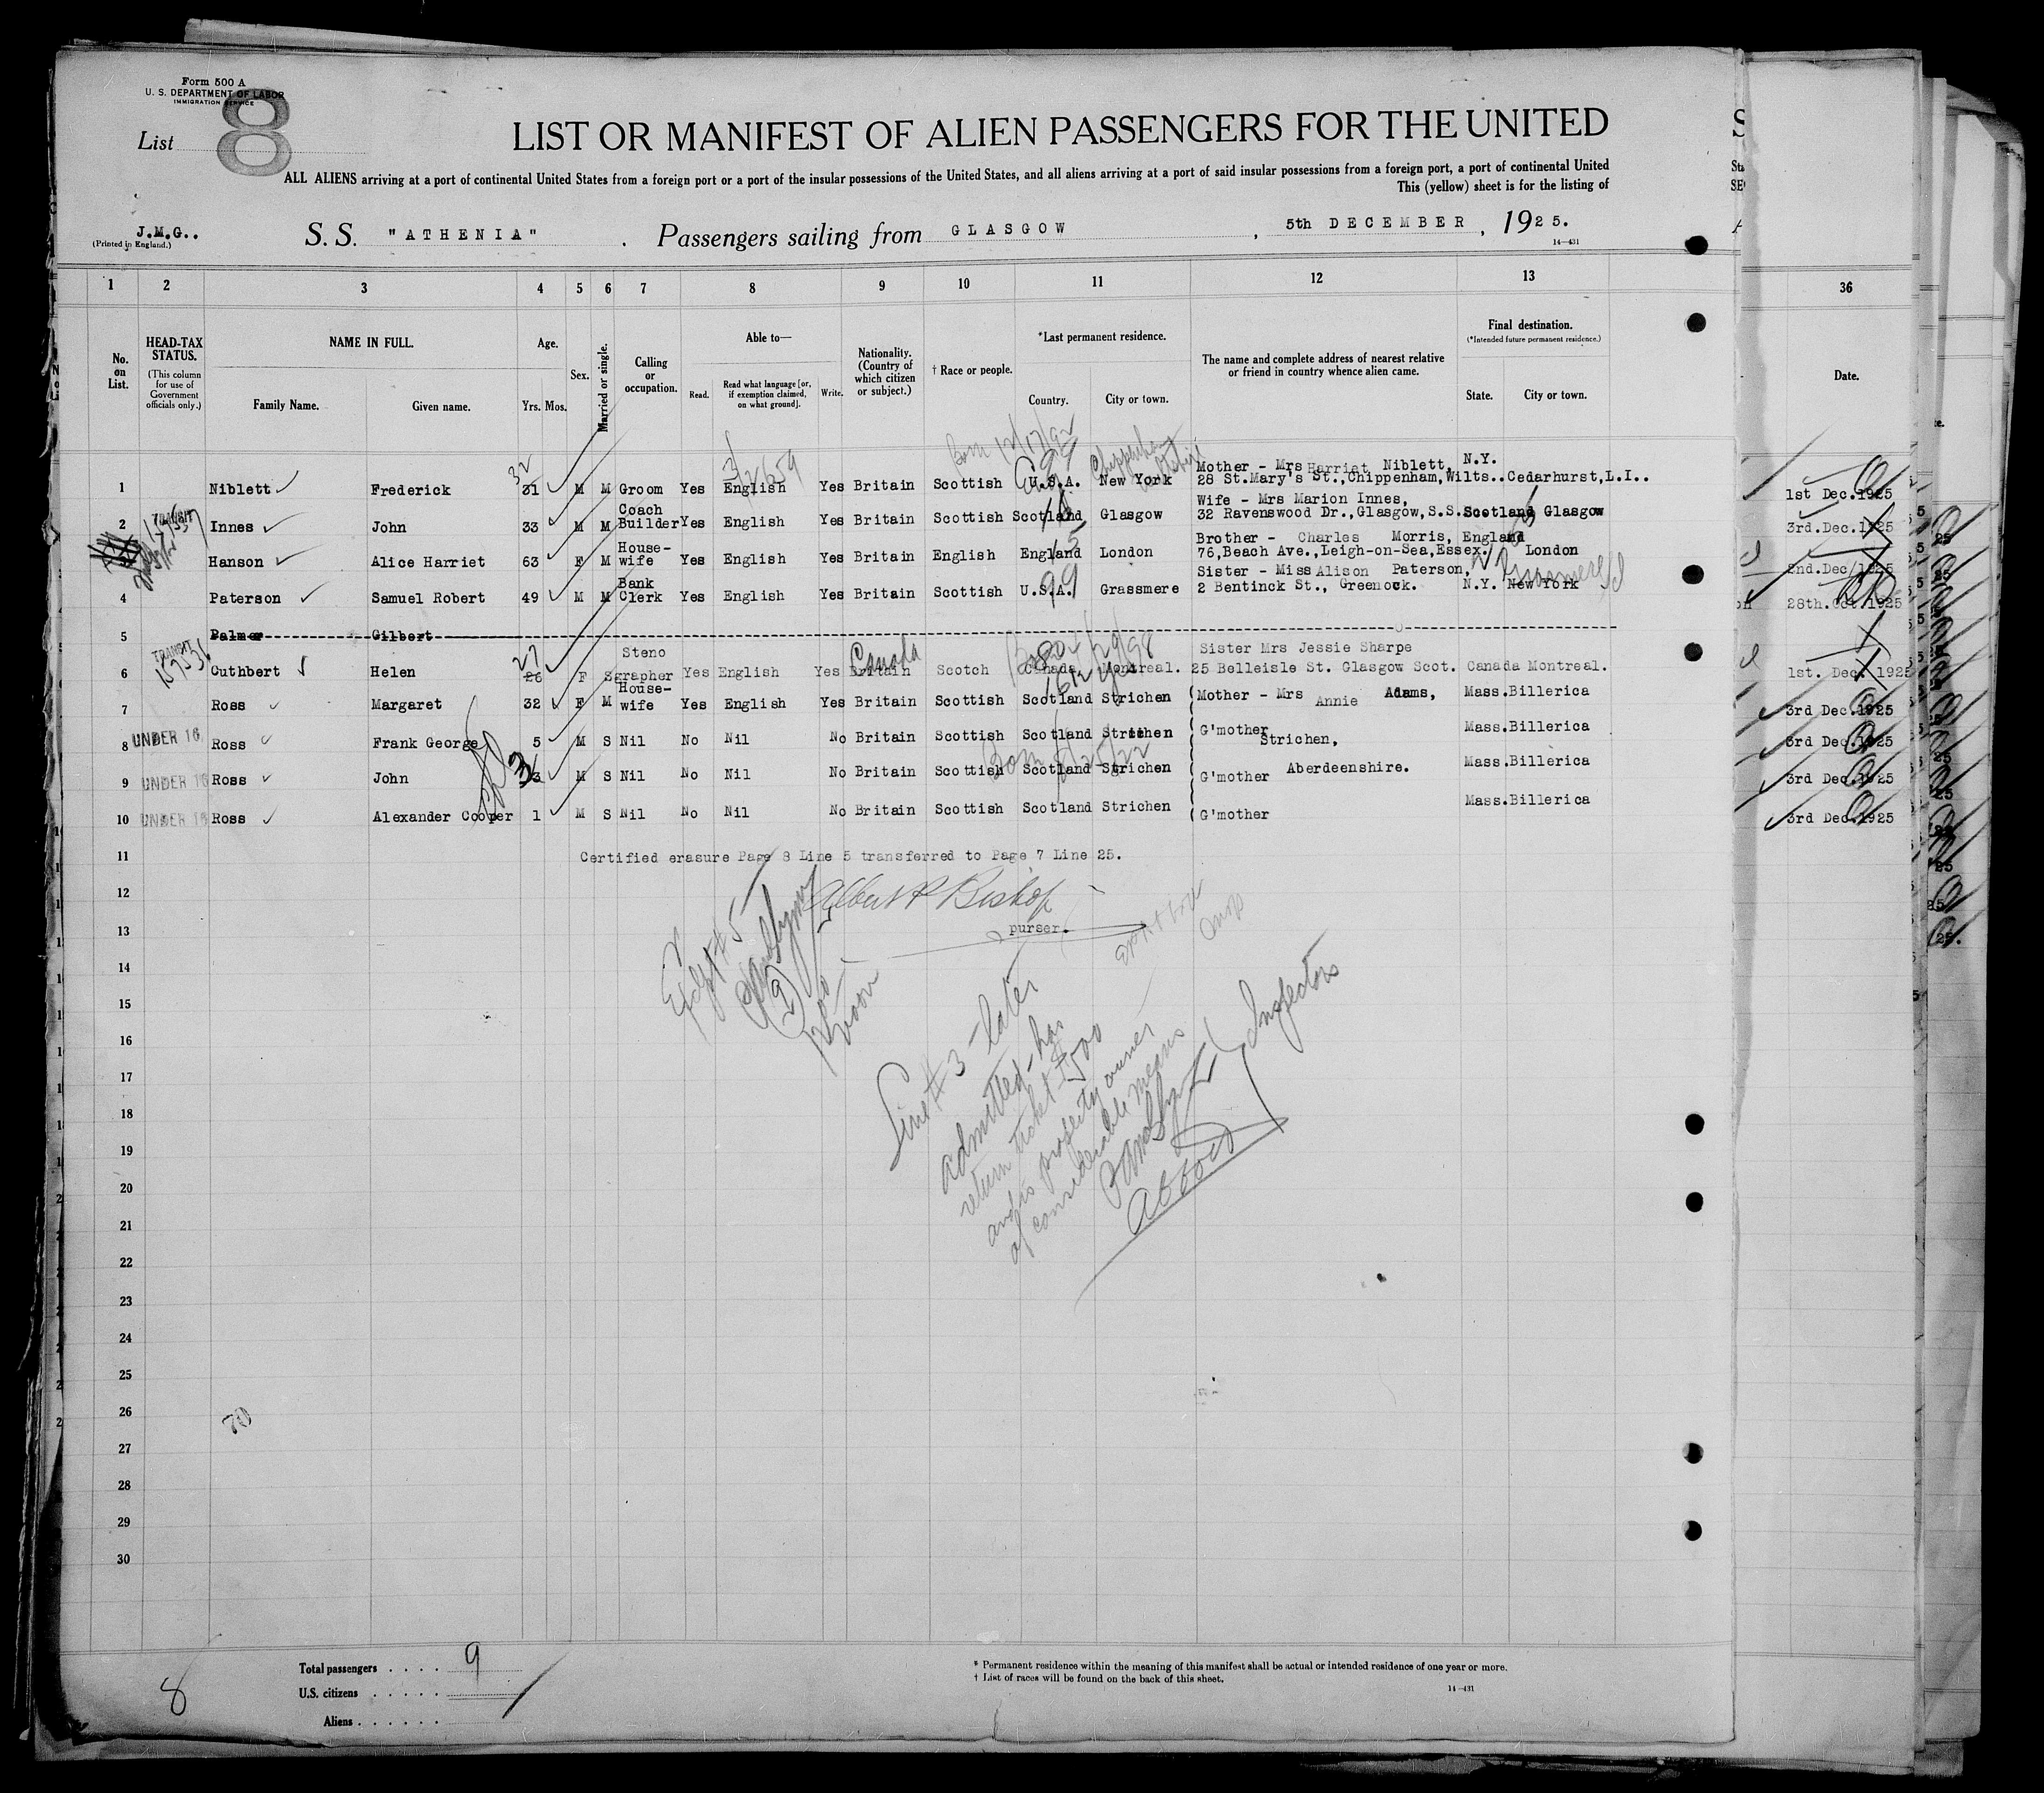 Form 500 A
U. S. DEPARTMENT OF LABOR
IMMIGRATION SERVICE
List 8
LIST OR MANIFEST OF ALIEN PASSENGERS FOR THE UNITED
ALL ALIENS arriving at a port of continental United States from a foreign port or a port of the insular possessions of the United States, and all aliens arriving at a port of said insular possessions from a foreign port, a port of continental United
This (yellow) sheet is for the listing of
J.M.G..
(Printed in England.)
S. S. "ATHENIA" . Passengers sailing from GLASGOW , 5th DECEMBER , 1925.
14—431
1 2 3 4 5 6 7 8 9 10 11 12 13 36
No. on List.
HEAD-TAX STATUS.
(This column for use of Government officials only.)
NAME IN FULL.
Family Name. Given name.
Age.
Yrs. Mos.
Sex.
Married or single.
Calling or occupation.
Able to—
Read. Read what language [or, if exemption claimed, on what ground]. Write.
Nationality. (Country of which citizen or subject.)
† Race or people.
*Last permanent residence.
Country. City or town.
The name and complete address of nearest relative or friend in country whence alien came.
Final destination.
(*Intended future permanent residence.)
State. City or town.
Date.
Born 12/17/92
3/12659
Chippenham
32
1 Niblett Frederick 31 M M Groom Yes English Yes Britain Scottish U.S.A. New York Mother - Mrs Harriet Niblett, 28 St.Mary's St.,Chippenham,Wilts.. N.Y. Cedarhurst,L.I.. 1st Dec.1925
TRANSIT
2 Innes John 33 M M Coach Builder Yes English Yes Britain Scottish Scotland Glasgow Wife - Mrs Marion Innes, 32 Ravenswood Dr.,Glasgow,S.S. Scotland Glasgow 3rd.Dec.1925
Hanson Alice Harriet 63 F M House-wife Yes English Yes Britain English England London Brother - Charles Morris, 76,Beach Ave.,Leigh-on-Sea,Essex. England London 2nd.Dec/1925
4 Paterson Samuel Robert 49 M M Bank Clerk Yes English Yes Britain Scottish U.S.A. Grassmere Sister - Miss Alison Paterson, 2 Bentinck St., Greenock. N.Y. New York 28th.Oct.1925
5 Palmer Gilbert
TRANSIT
27 Canada
6 Cuthbert Helen 26 F S Steno grapher Yes English Yes Britain Scotch Canada Montreal. Sister Mrs Jessie Sharpe 25 Belleisle St. Glasgow Scot. Canada Montreal. 1st. Dec. 1925
7 Ross Margaret 32 F M House-wife Yes English Yes Britain Scottish Scotland Strichen Mother - Mrs Annie Adams, Mass. Billerica 3rd Dec.1925
8 UNDER 16 Ross Frank George 5 M S Nil No Nil No Britain Scottish Scotland Strichen G'mother Strichen, Mass. Billerica 3rd Dec.1925
Born 8/25/22
9 UNDER 16 Ross John 3 M S Nil No Nil No Britain Scottish Scotland Strichen G'mother Aberdeenshire. Mass. Billerica 3rd Dec.1925
10 UNDER 16 Ross Alexander Cooper 1 M S Nil No Nil No Britain Scottish Scotland Strichen G'mother Mass. Billerica 3rd Dec.1925
11 Certified erasure Page 8 Line 5 transferred to Page 7 Line 25.
12 Albert R Bishop
13 purser.
14
15
16
17
18
19
20
21
22
23
24
25
26
27
28
29
30
Line # 3 - later
admitted - has
return ticket £500
and is property owner
of considerable means
Abbott
Inspectors
70
8
Total passengers . . . . 9
U.S. citizens . . . . .
Aliens . . . . . .
* Permanent residence within the meaning of this manifest shall be actual or intended residence of one year or more.
† List of races will be found on the back of this sheet.
14—431